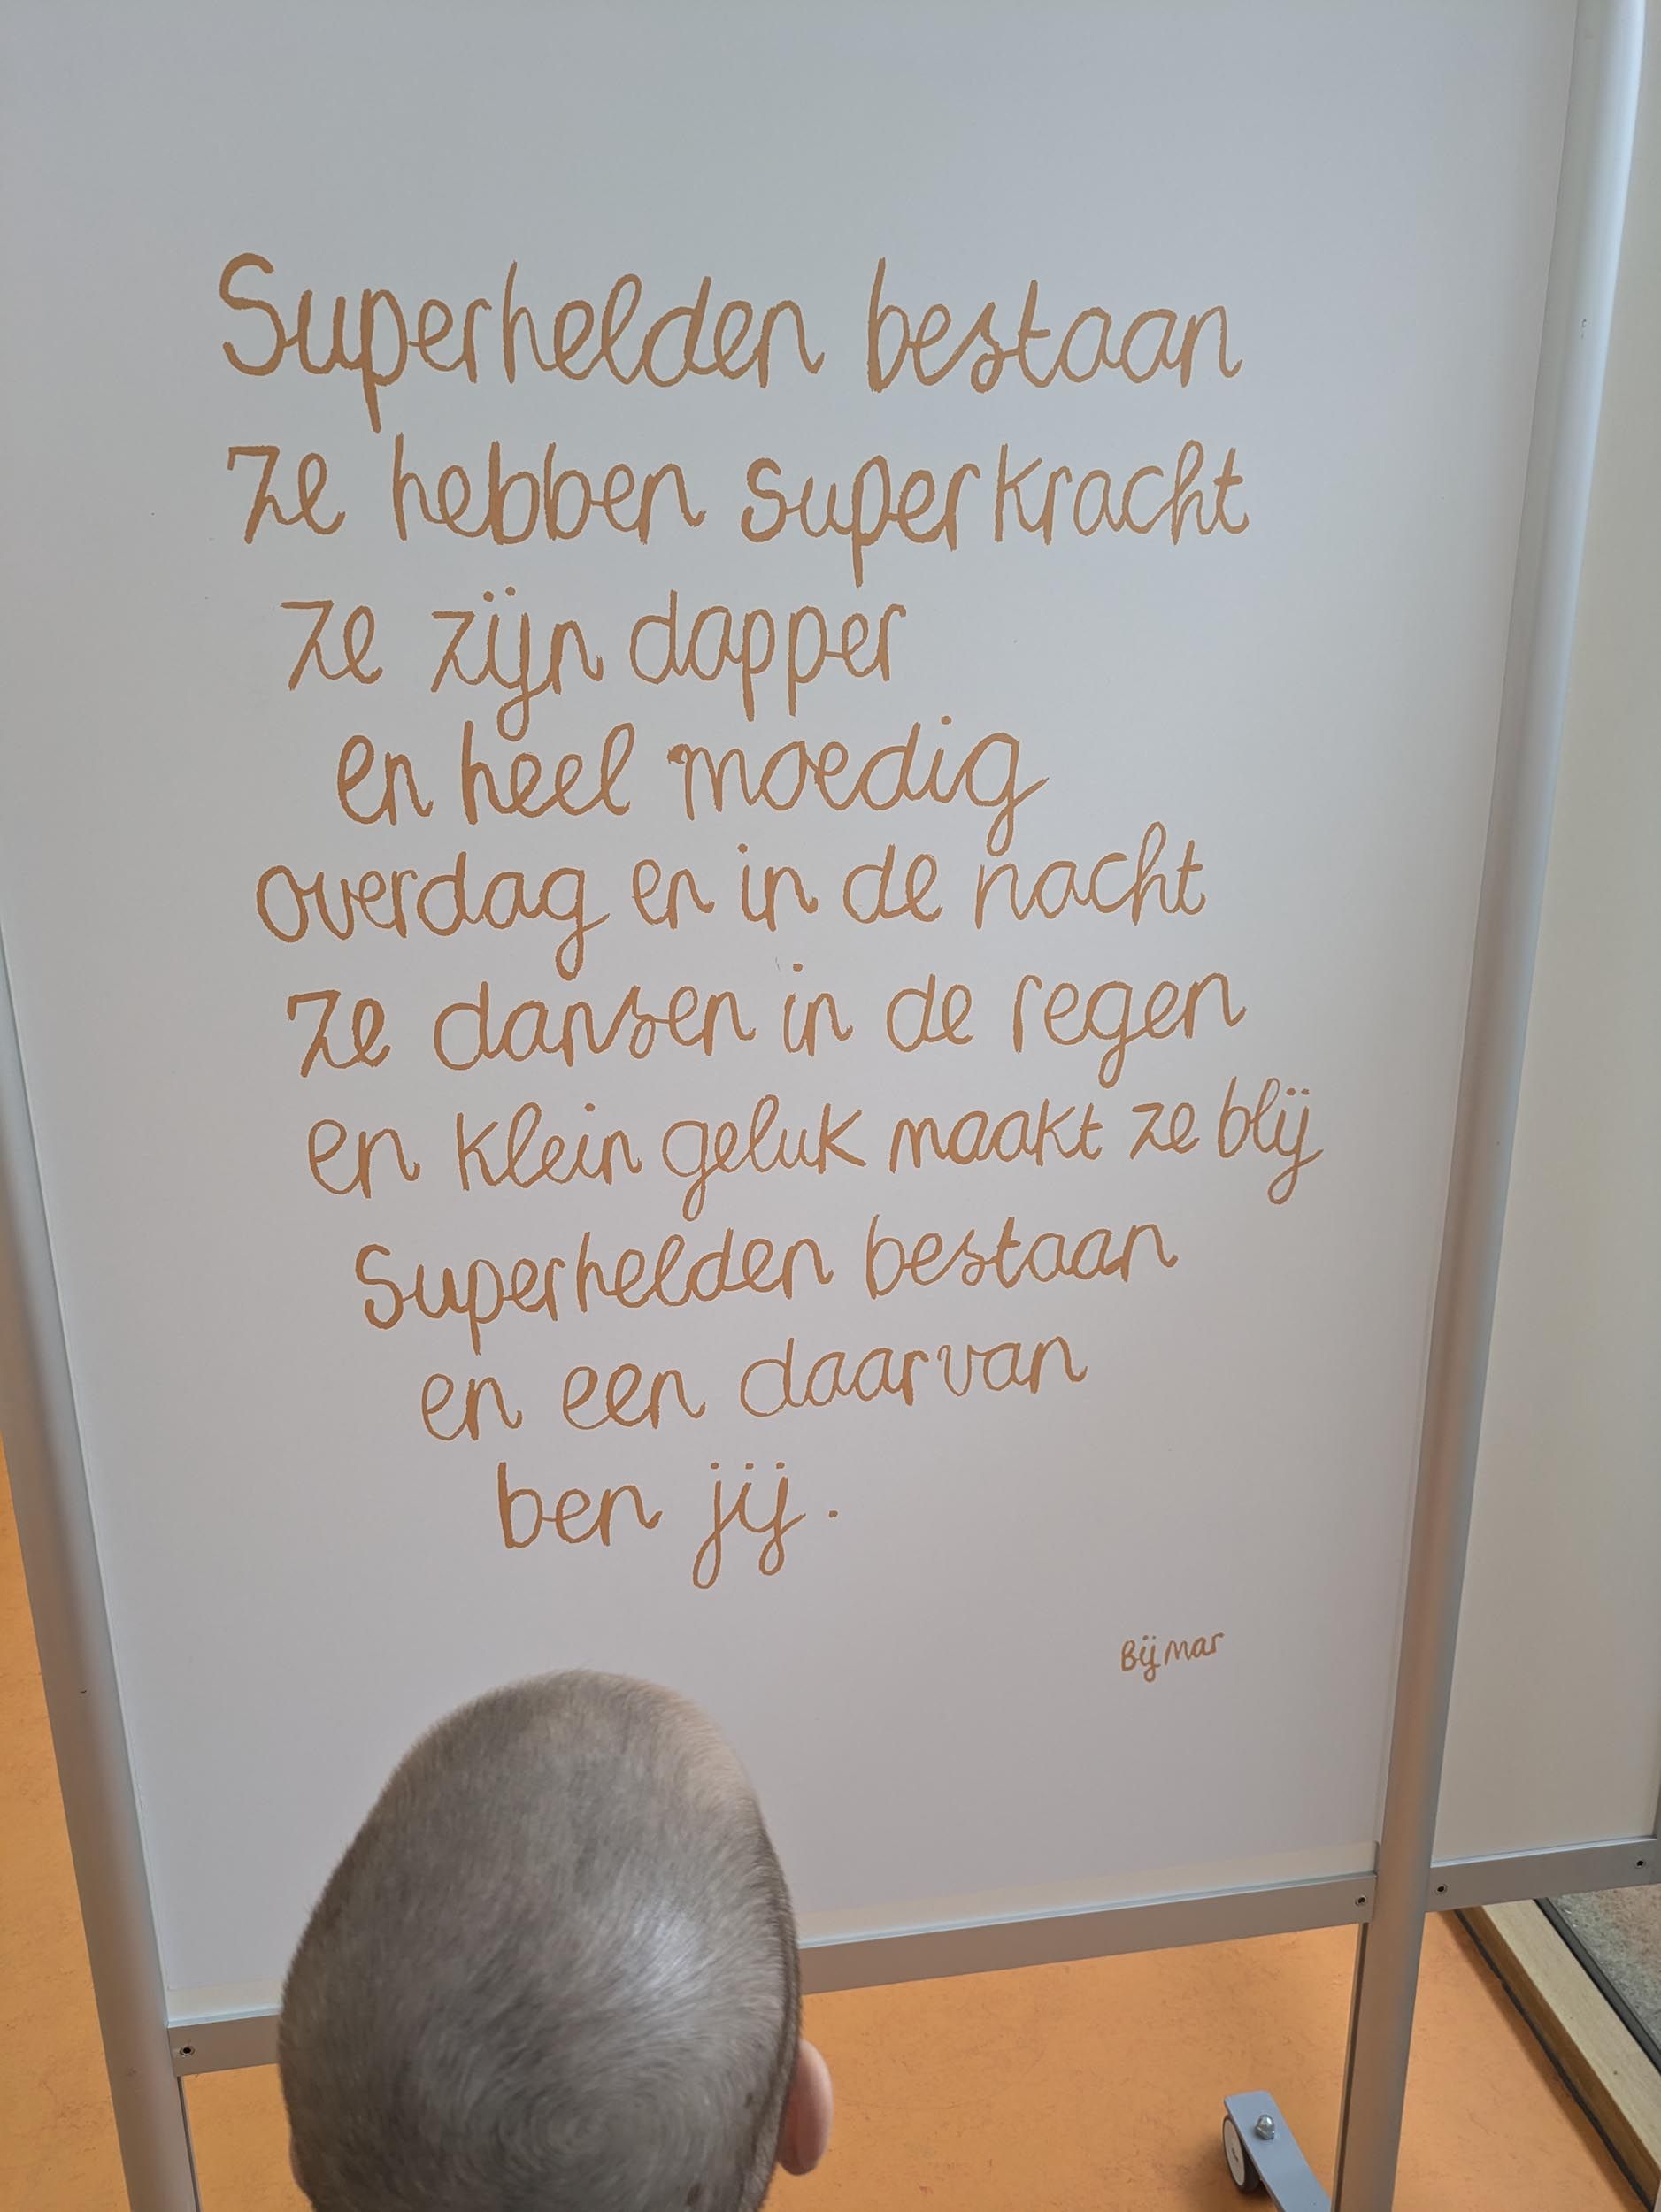 Superhelden bestaan
Ze hebben superkracht
Ze zijn dapper
en heel moedig
overdag en in de nacht
Ze dansen in de regen
en klein geluk maakt ze blij
Superhelden bestaan
en een daarvan
ben jij.
Bij Mar